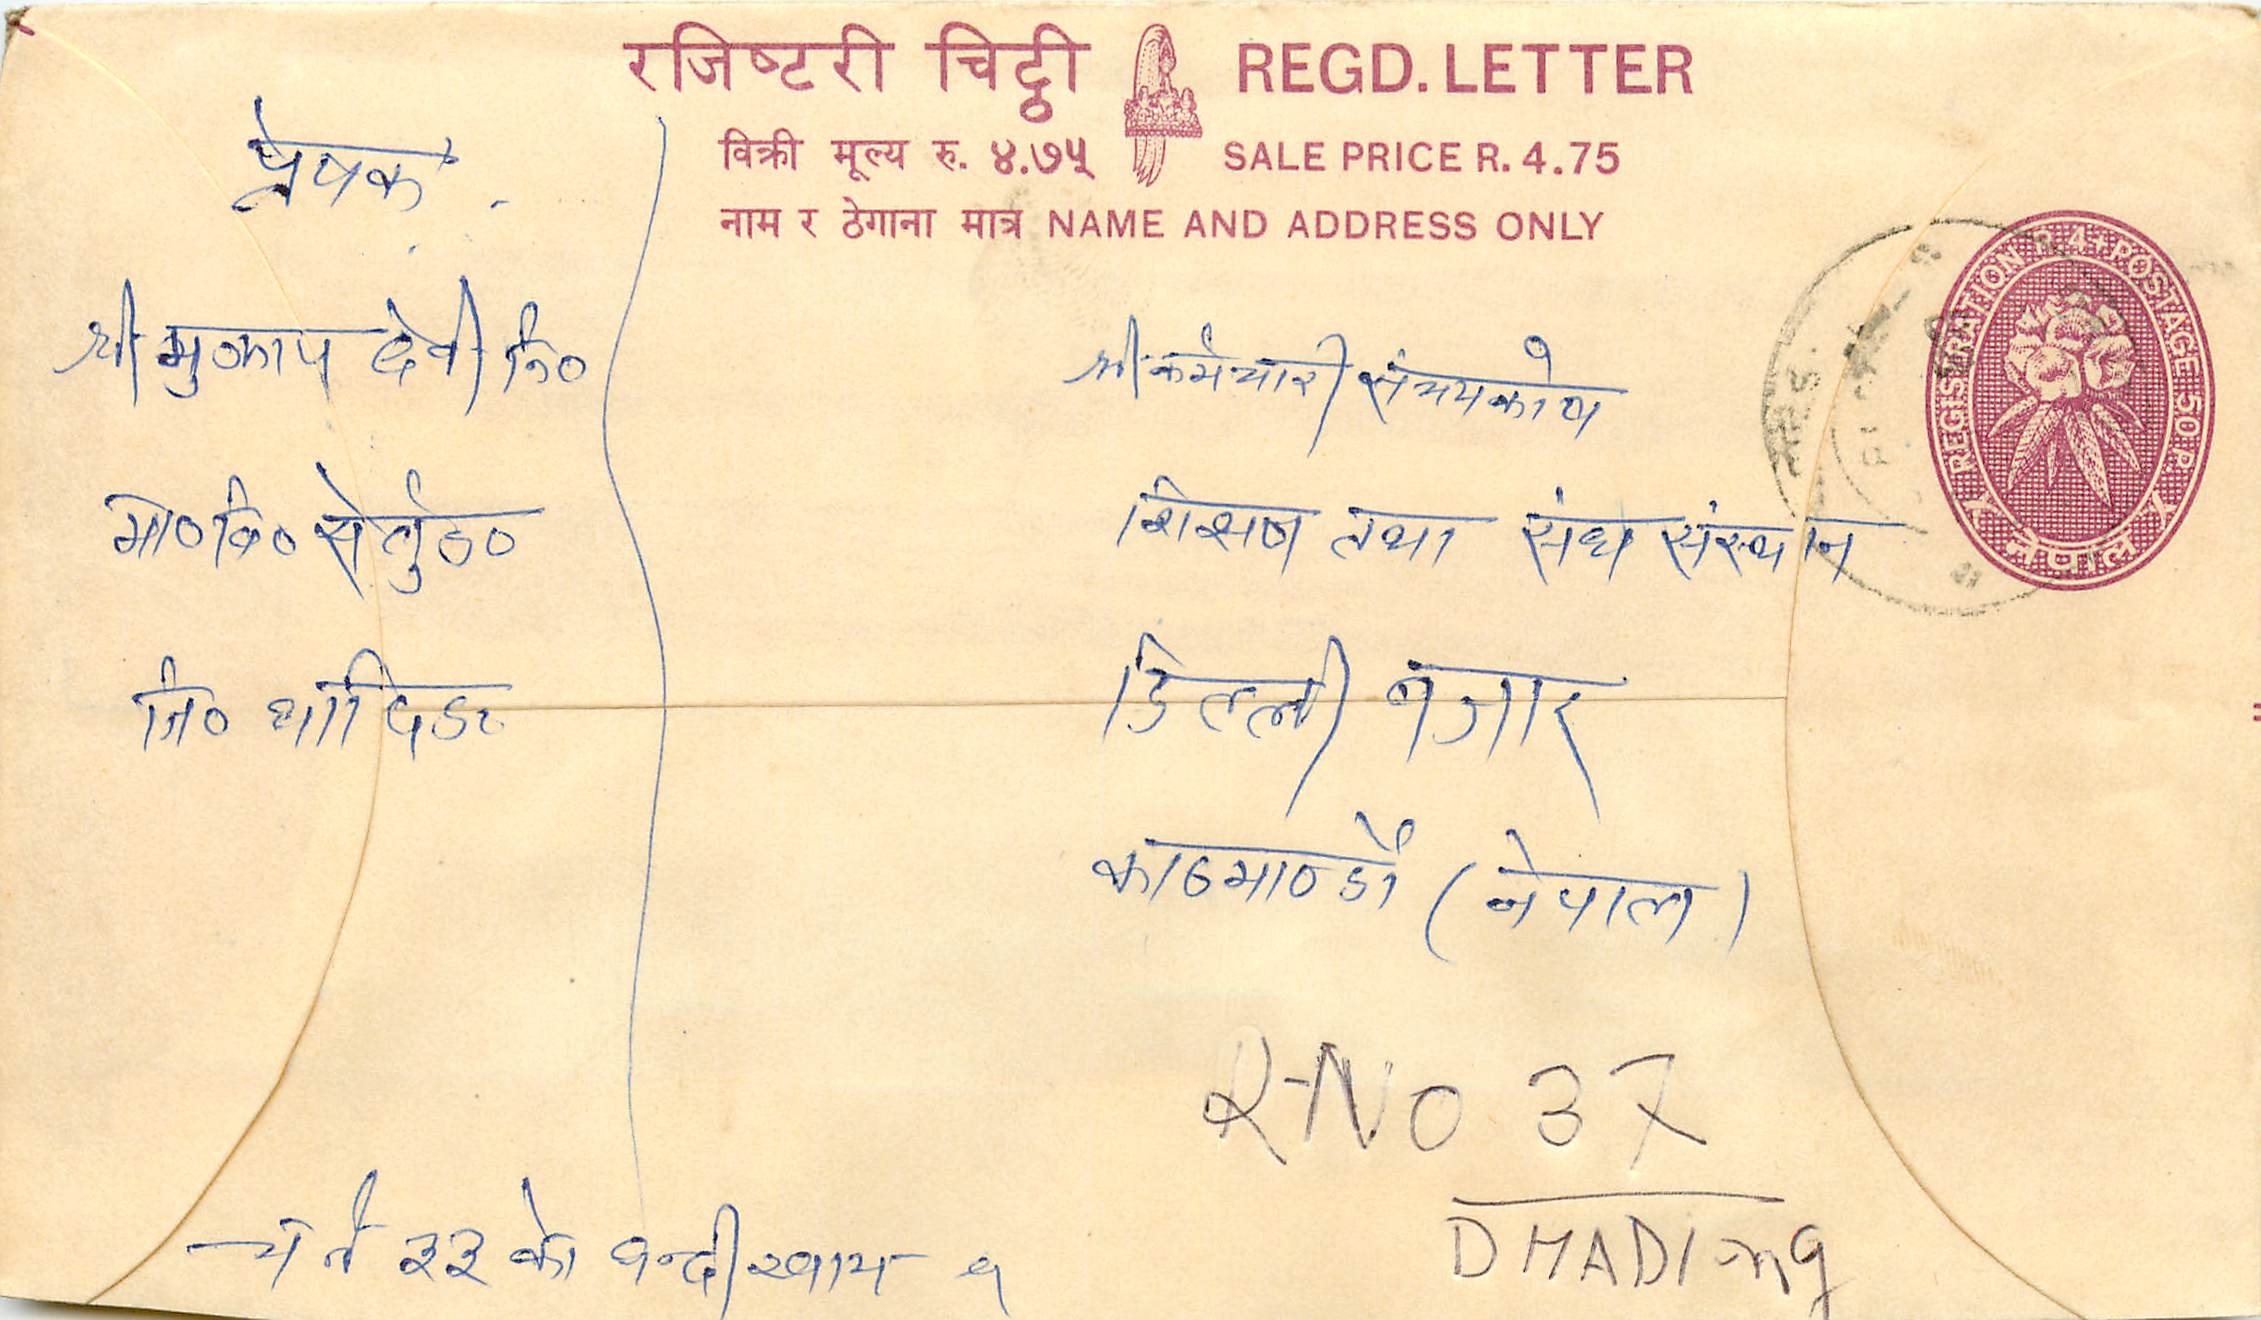 रजिष्टरी चिट्ठी REGD. LETTER
विक्री मूल्य रु. ४.७५ SALE PRICE R. 4.75
नाम र ठेगाना मात्र NAME AND ADDRESS ONLY
REGISTRATION R. 4+POSTAGE 50 P.
नेपाल
प्रेषक
श्री देवी
मा०वि०
जि० धादिङ
श्री कर्मचारी संचयकोष
शिक्षण तथा संघ संस्थान
डिल्ली बजार
काठमाण्डौ (नेपाल)
R-NO 37
DHADING
चैत ३३ को